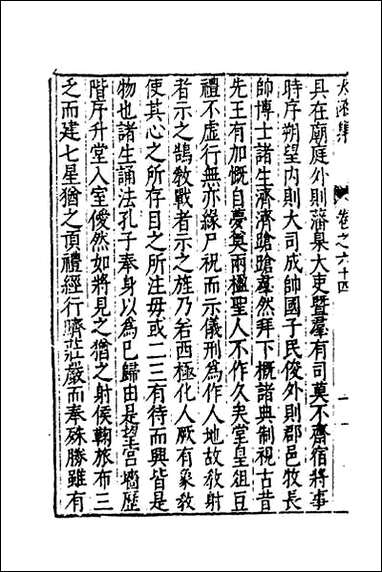 太函集 卷之六十四 二
具在廟庭外則藩臬大吏暨羣有司莫不齋宿將事
時序朔望内則大司成帥國子民俊外則郡邑牧長
帥博士諸生濟濟蹌蹌羣然拜下概諸典制視古昔
先王有加慨自夢奠兩楹聖人不作久矣堂皇徂豆
禮不虛行無亦緣尸祝而示儀刑爲作人地故敎射
者示之鵠敎戰者示之旌乃若西極化人厥有象敎
使其心之所存目之所注毋或二三有待而興皆是
物也諸生誦法孔子奉身以爲已歸由是望宮墻歷
階序升堂入室僾然如將見之猶之射侯鞠旅布三
乏而建七星猶之頂禮經行嚌莊嚴而奉殊勝雖有